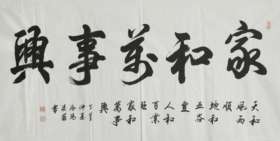 家和萬事興
天和
風雨
順
地和
五谷
豐
人和
百業
旺
家和
萬事
興
仲夏
書